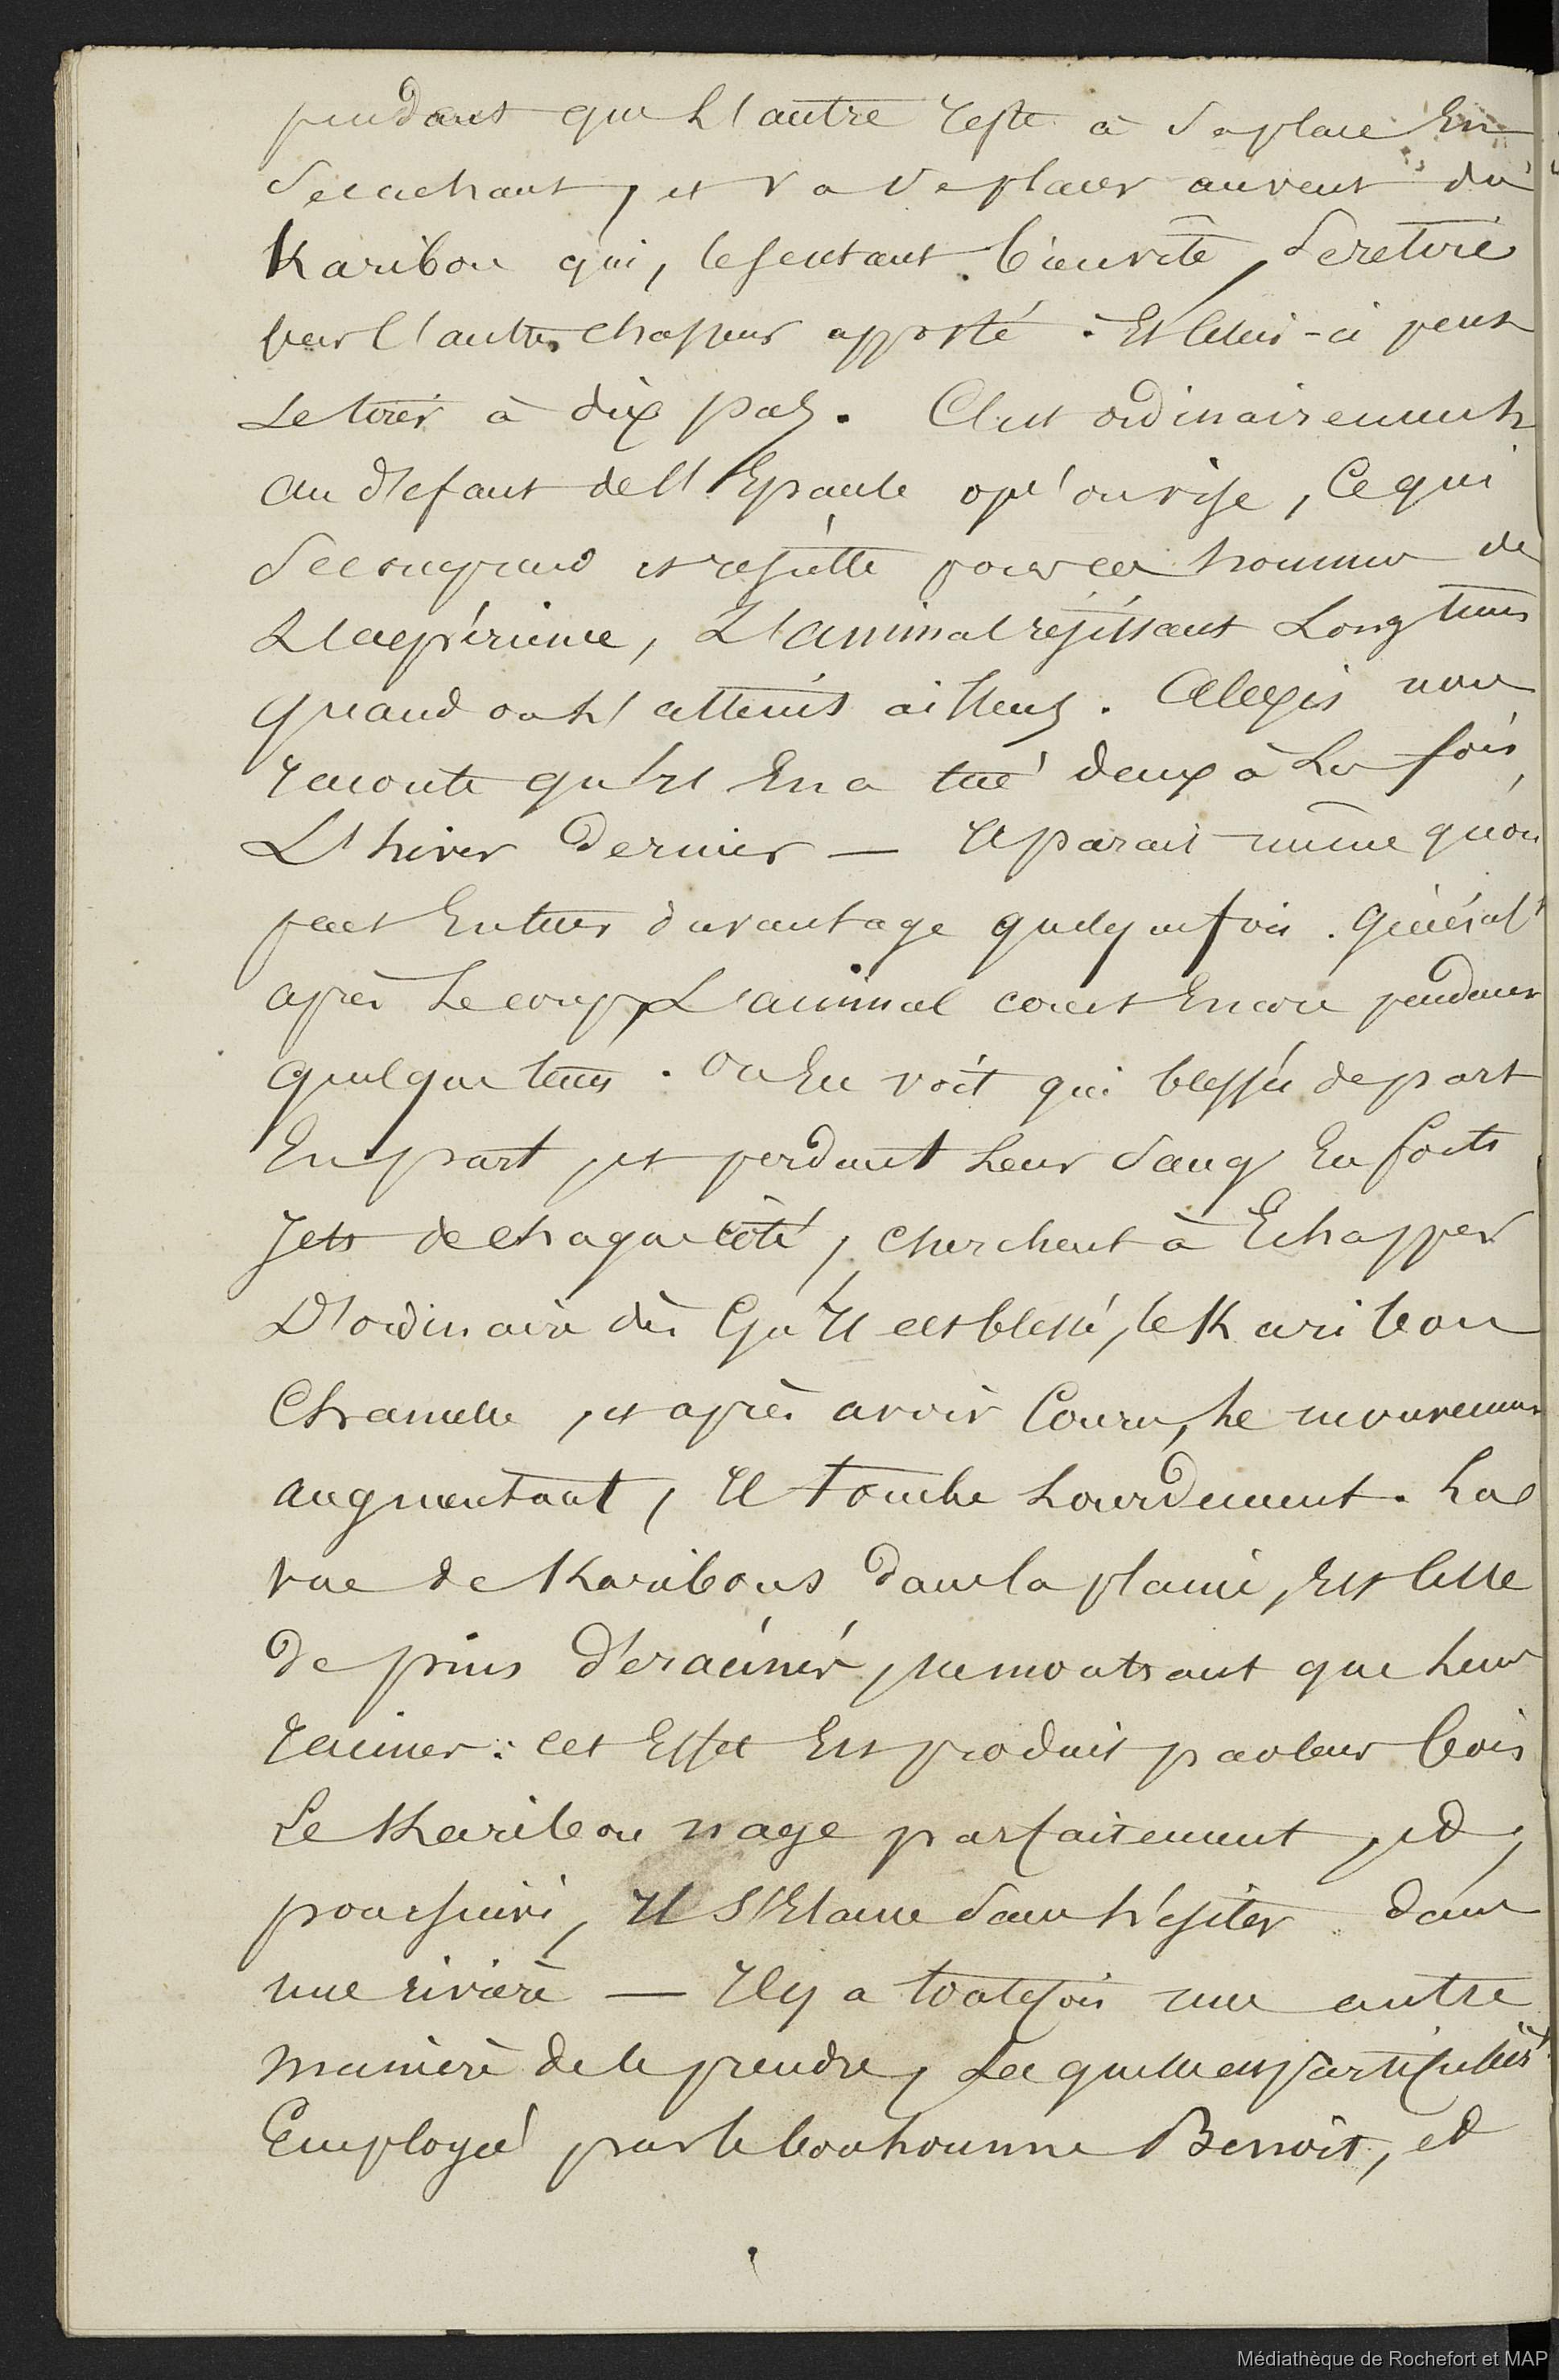 pendant que l'autre reste à sa place en
se cachant, et va se placer au vent du
Karibou qui, le sentant bien vite, se retire
vers l'autre chasseur apposté. Et celui-ci peut
le tirer à dix pas. C'est ordinairement
au défaut de l'Epaule qu'on vise, ce qui
se comprend et résulte pour ces hommes de
l'expérience, l'animal résistant longtems
quand on l'atteint ailleurs. Alexis nous
raconte qu'il en a tué deux à la fois,
l'hiver dernier — Il parait même qu'on
peut en tuer davantage quelquefois. Généralt
après le coup, l'animal court encore pendant
quelque tems. On en voit qui blessés de part
en part, et perdant leur sang en forts
jets de chaque côté, cherchent à Echapper
D'ordinaire dès qu'il est blessé, le Karibou
chancelle, et après avoir couru, le mouvement
augmentant, il tombe lourdement. La
vue de Karibous dans la plaine, est celle
de pins déracinés, ne montrant que leurs
racines : cet Effet est produit par leur bois
Le Karibou nage parfaitement, et,
poursuivi, il s'Elance sans hésiter dans
une rivière — Il y a toutefois une autre
manière de le prendre, laquelle est particulièrt
Employée par le bonhomme Benoit, et
Médiathèque de Rochefort et MAP